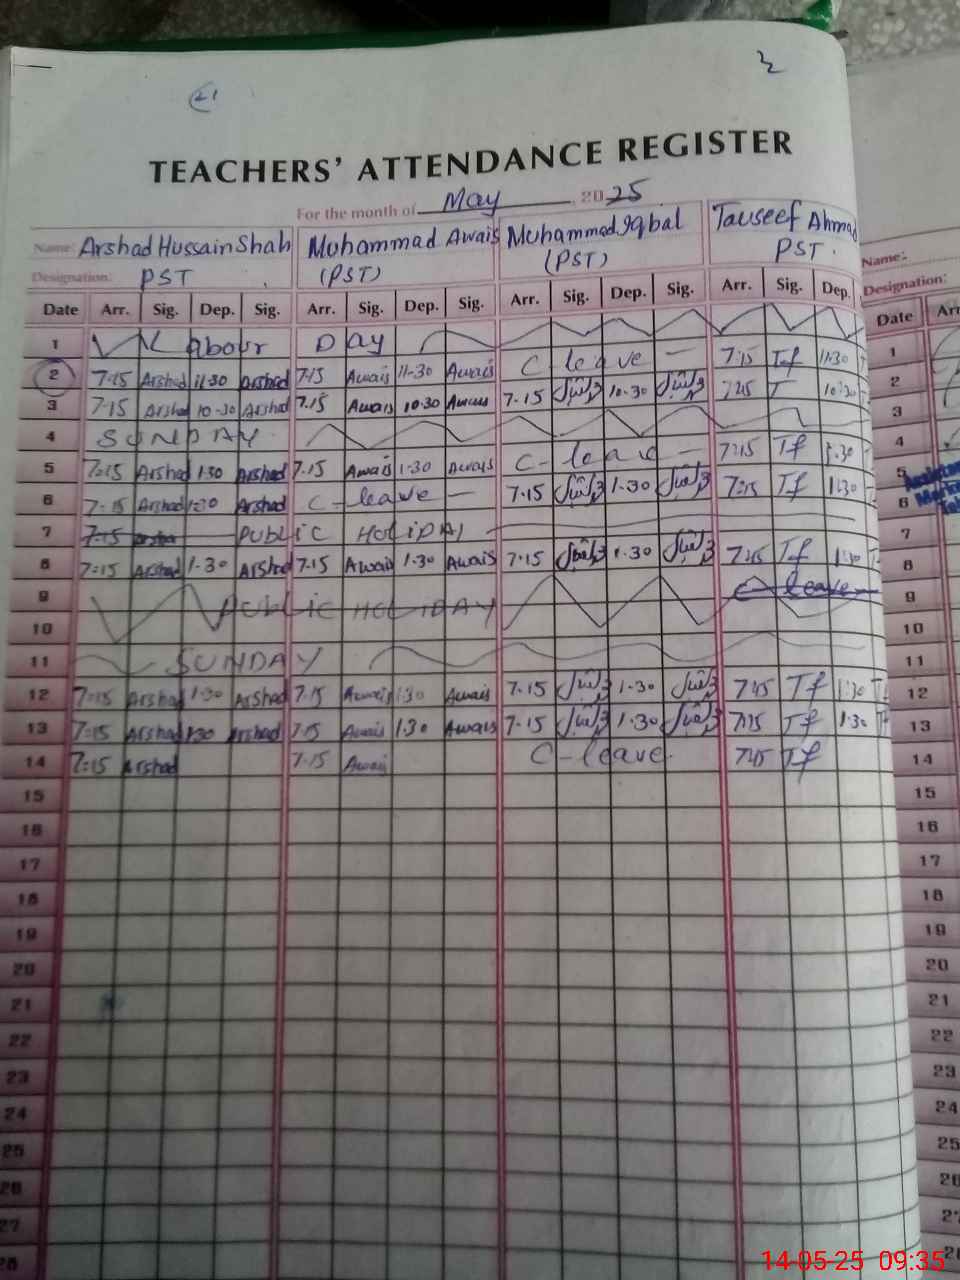 TEACHERS' ATTENDANCE REGISTER
For the month of May, 2025
Name: Arshad Hussain Shah Muhammad Awais Muhammad Iqbal Tauseef Ahmad
Designation: PST (PST) (PST) PST.
Date Arr. Sig. Dep. Sig. Arr. Sig. Dep. Sig. Arr. Sig. Dep. Sig. Arr. Sig. Dep.
1 Labour Day
2 7-15 Arshad 11-30 Arshad 7-15 Awais 11-30 Awais C leave — 7:15 Tf 11-30
3 7-15 Arshad 10-30 Arshad 7.15 Awais 10.30 Awais 7-15 10-30 T 10:30
4 SUNDAY
5 7:15 Arshad 1.30 Arshad 7.15 Awais 1-30 Awais C-leave — Tf
6 7-15 Arshad 1-30 Arshad C-leave — 7.15 1.30 7:15 Tf 1:30
7 7-15 PUBLIC HOLIDAY
8 7:15 Arshad 1-30 Arshad 7-15 Awais 1.30 Awais 7-15 1-30 Tf 1:30
9 PUBLIC HOLIDAY C-leave
10
11 SUNDAY
12 7:15 Arshad 1-30 Arshad 7-15 Awais 1:30 Awais 7-15 1-30 Tf 1:30
13 7:15 Arshad 1:30 Arshad 7-15 Awais 1.30 Awais 7-15 1-30 Tf 1-30
14 7:15 Arshad 7-15 Awais C-leave. Tf
15
16
17
18
19
20
21
22
23
24
25
26
27
28
Name:
Designation:
Date Arr
1
2
3
4
5
6
7
8
9
10
11
12
13
14
15
16
17
18
19
20
21
22
23
24
25
26
14-05-25 09:35